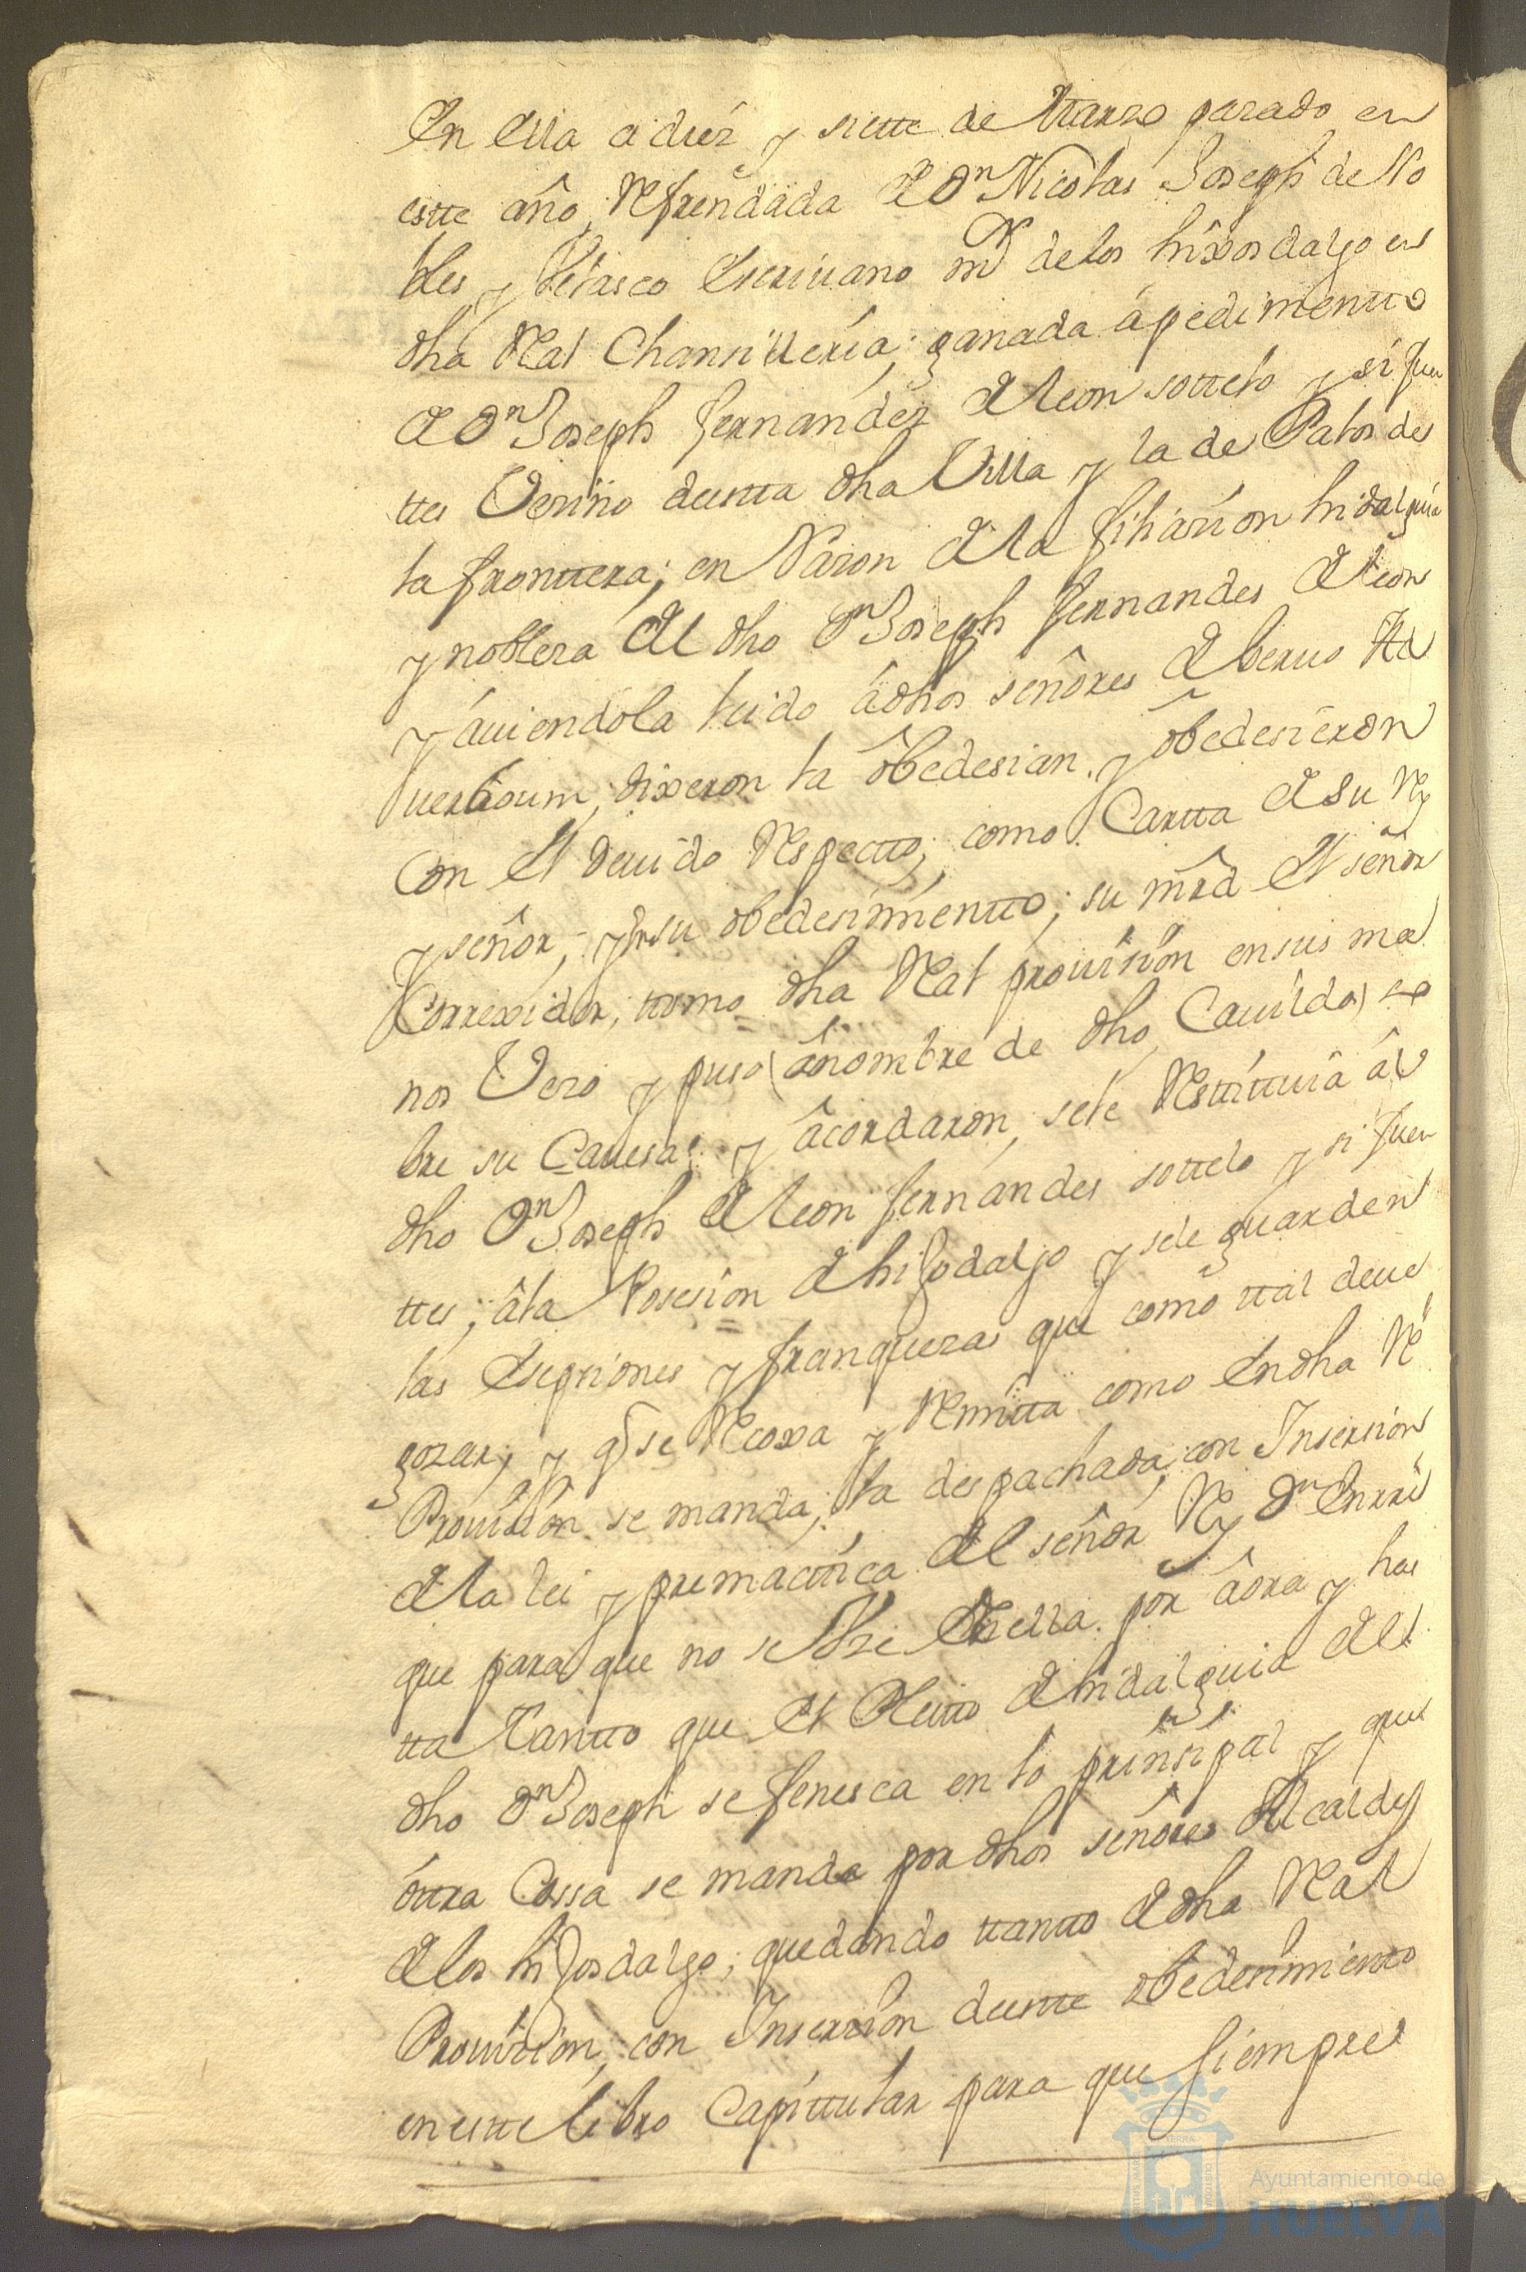 En ella a diez y siette de Marzo pasado en
estte año, Refrendada de Dn Nicolas Joseph de No
bles y Velasco Escriuano mr de los hixosdalgo en
dha Real Chansilleria; ganada á pedimentto
de Dn Joseph fernandez de leon sottelo y sifuen
ttes Vesino de estta dha Villa y la de Palos de
la fronttera; en Rason de la filiasion hidalguia
y noblesa del dho Dn Joseph fernandes de leon
y áuiendola leido ádhos señores de beruo Ad
uerboum, dixeron la obedesian, y obedesieron
Con el deuido Respectto; como Cartta de su Rey
y señor, y en su obedesimientto; su mrd el señor
Correxidor, ttomo dha Real prouision en sus ma
nos Veso y puso (â nombre de dho Cauildo) so
bre su Cauesa; y âcordaron, se le Resttittuia âl
dho Dn Joseph de leon fernandes sottelo y sifuen
ttes, âla Posesion de hijodalgo y se le guarden
las Esepsiones y franquezas que como ttal deue
gozar; y q se Recoxa y Remitta como en dha Rl
Prouision se manda, la despachada con Insersion
de la lei y premacttica del señor Rey Dn Enrri
que para que no se Vse de ella por âora y has
tta ttantto que el Pleitto de hidalguia del
dho Dn Joseph se fenesca en lo prinsipal y que
ottra Cossa se mande por dhos señores Alcaldes
de los hijosdalgo; quedando ttantto de dha Real
Prouision, con Insersion de estte obedesimiento
en estte libro Capittular para que siempre
Ayuntamiento de
HUELVA